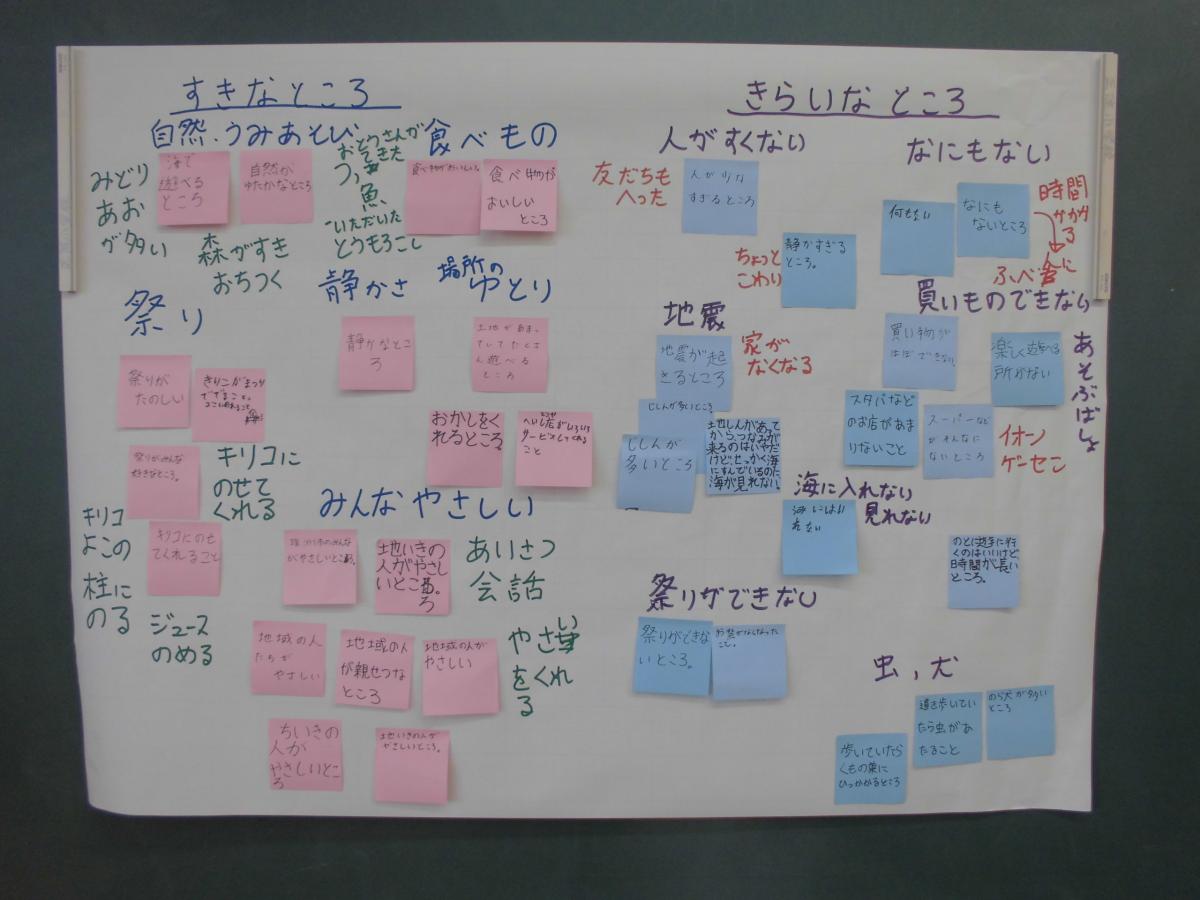 すきなところ
自然・うみあそび
みどり
あお
が多い
海で
遊べる
ところ
自然が
ゆたかなところ
森がすき
おちつく
食べもの
おとうさんが
魚
いただいた
とうもろこし
食べ物がおいしい。
食べ物が
おいしい
ところ
祭り
祭りが
たのしい
祭りがみんな
好きなところ。
キリコに
のせて
くれる
キリコ
よこの
柱に
のる
てくれること
ジュース
のめる
静かさ
静かなとこ
ろ
場所の
ゆとり
土地があまっ
ていてたくさ
ん遊べる
ところ
おかしをく
れるところ
サービスしてくれる
こと
みんなやさしい
がやさしいところ。
地いきの
人がやさし
いとこ
ろ
あいさつ
会話
地域の人
たちが
やさしい
地域の人
が親せつな
ところ
地域の人が
やさしい
をくれ
る
ちいきの
人が
やさしいとこ
ろ
地いきの人が
やさしいところ。
きらいなところ
人がすくない
友だちも
へった
人が少な
すぎるところ
ちょっと
こわい
静かすぎる
ところ。
なにもない
何もない
なにも
ないところ
時間
かかか
る
地震
地震が起
きるところ
家が
なくなる
じしんが多いところ
じしんが
多いところ
地しんがあって
からつなみが
来るのはいやだ
けど、せっかく海
にすんでいるのに
海が見れない
買いものできない
買い物が
ほぼできない
楽しく遊べる
所がない
あそぶばしょ
スタバなど
のお店があま
りないこと
スーパーなど
がそんなに
ないところ
イオン
ゲーセン
海に入れない
見れない
海にはい
れない
のとに遊きに行
くのはいいけど、
時間が長い
ところ。
祭りができない
祭りができな
いところ。
虫，犬
道を歩いてい
たら虫があ
たること
のら犬が多い
ところ
歩いていたら
くもの巣に
ひっかかるところ